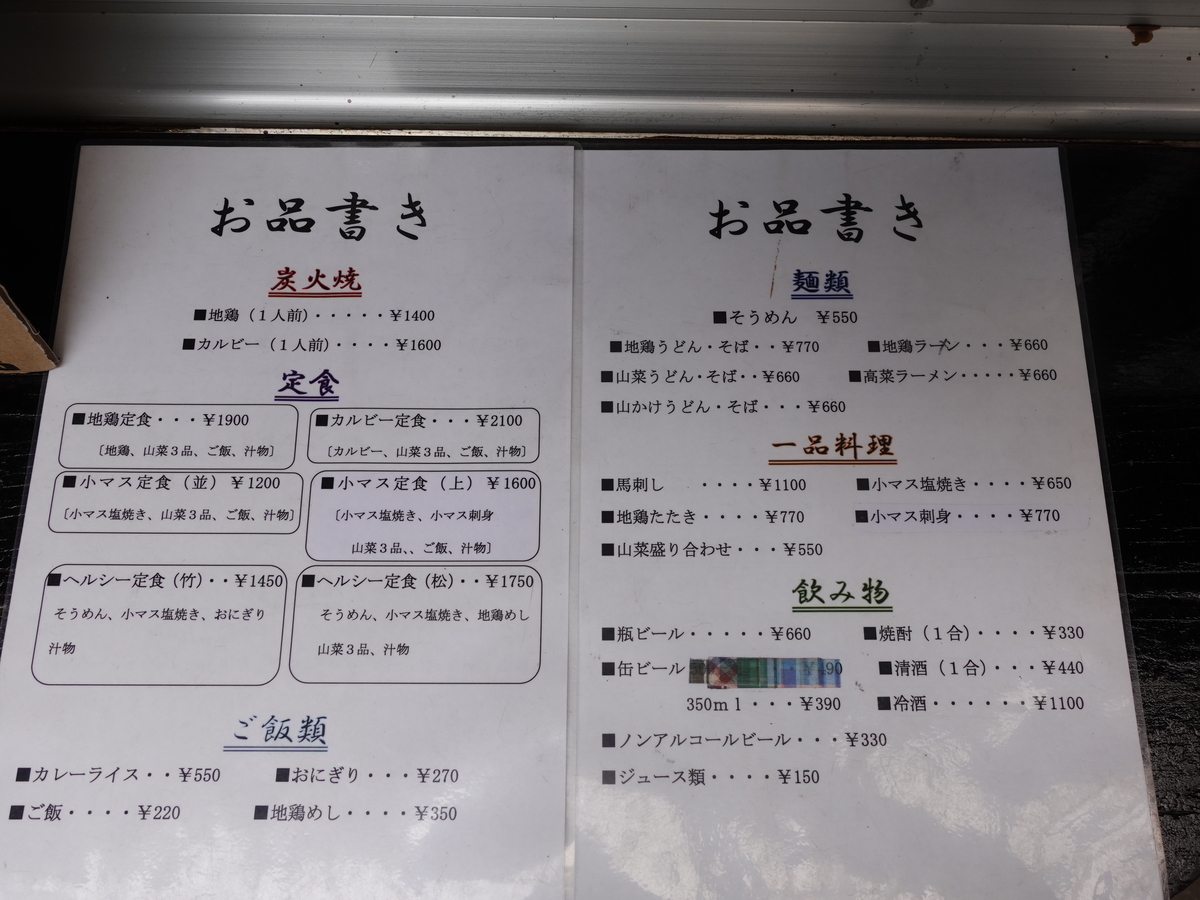 お品書き
炭火焼
■地鶏（１人前）・・・・・￥1400
■カルビー（１人前）・・・・￥1600
定食
■地鶏定食・・・￥1900
［地鶏、山菜３品、ご飯、汁物］
■カルビー定食・・・￥2100
［カルビー、山菜３品、ご飯、汁物］
■小マス定食（並）￥1200
［小マス塩焼き、山菜３品、ご飯、汁物］
■小マス定食（上）￥1600
［小マス塩焼き、小マス刺身
山菜３品、、ご飯、汁物］
■ヘルシー定食（竹）・・￥1450
そうめん、小マス塩焼き、おにぎり
汁物
■ヘルシー定食（松）・・￥1750
そうめん、小マス塩焼き、地鶏めし
山菜３品、汁物
ご飯類
■カレーライス・・￥550
■おにぎり・・・￥270
■ご飯・・・・￥220
■地鶏めし・・・・￥350
お品書き
麺類
■そうめん　￥550
■地鶏うどん・そば・・￥770
■地鶏ラーメン・・・￥660
■山菜うどん・そば・・￥660
■高菜ラーメン・・・・・￥660
■山かけうどん・そば・・・￥660
一品料理
■馬刺し　・・・・￥1100
■小マス塩焼き・・・・￥650
■地鶏たたき・・・・￥770
■小マス刺身・・・・￥770
■山菜盛り合わせ・・・￥550
飲み物
■瓶ビール・・・・・￥660
■焼酎（１合）・・・・￥330
■缶ビール
■清酒（１合）・・・￥440
350ｍｌ・・・￥390
■冷酒・・・・・・￥1100
■ノンアルコールビール・・・￥330
■ジュース類・・・・￥150